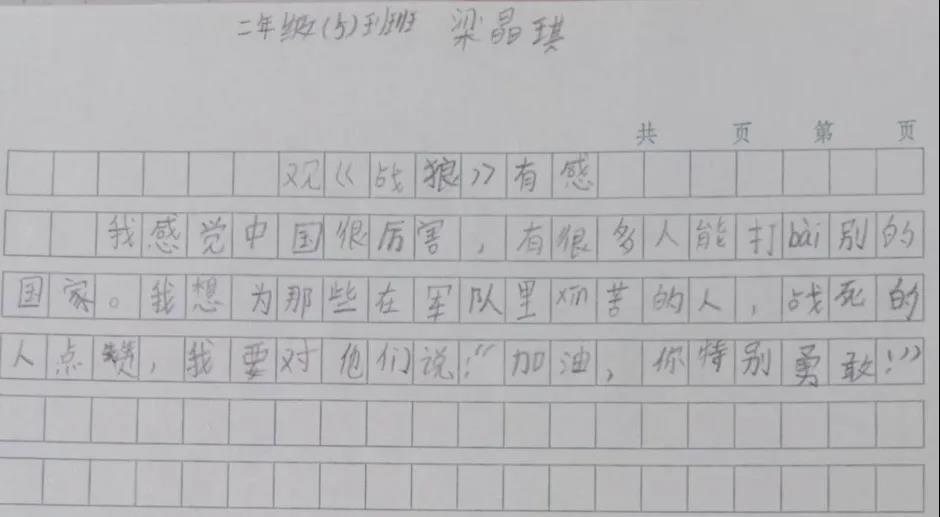 二年级(5)班 梁晶琪
共 页 第 页
观《战狼》有感
我感觉中国很厉害，有很多人能打bài别的
国家。我想为那些在军队里xīn苦的人，战死的
人点赞，我要对他们说：“加油，你特别勇敢！”